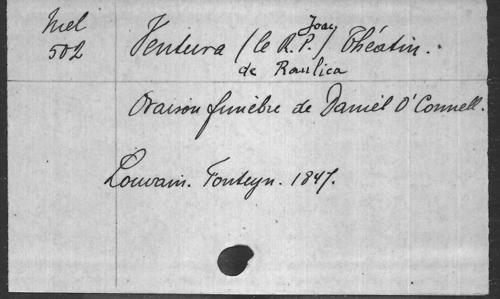 Mel
502
Ventura / (le R. P. Joac / Théatin.
de Raulica
Oraison funèbre de Daniel O'Connell.
Louvain. Fonteyn. 1847.